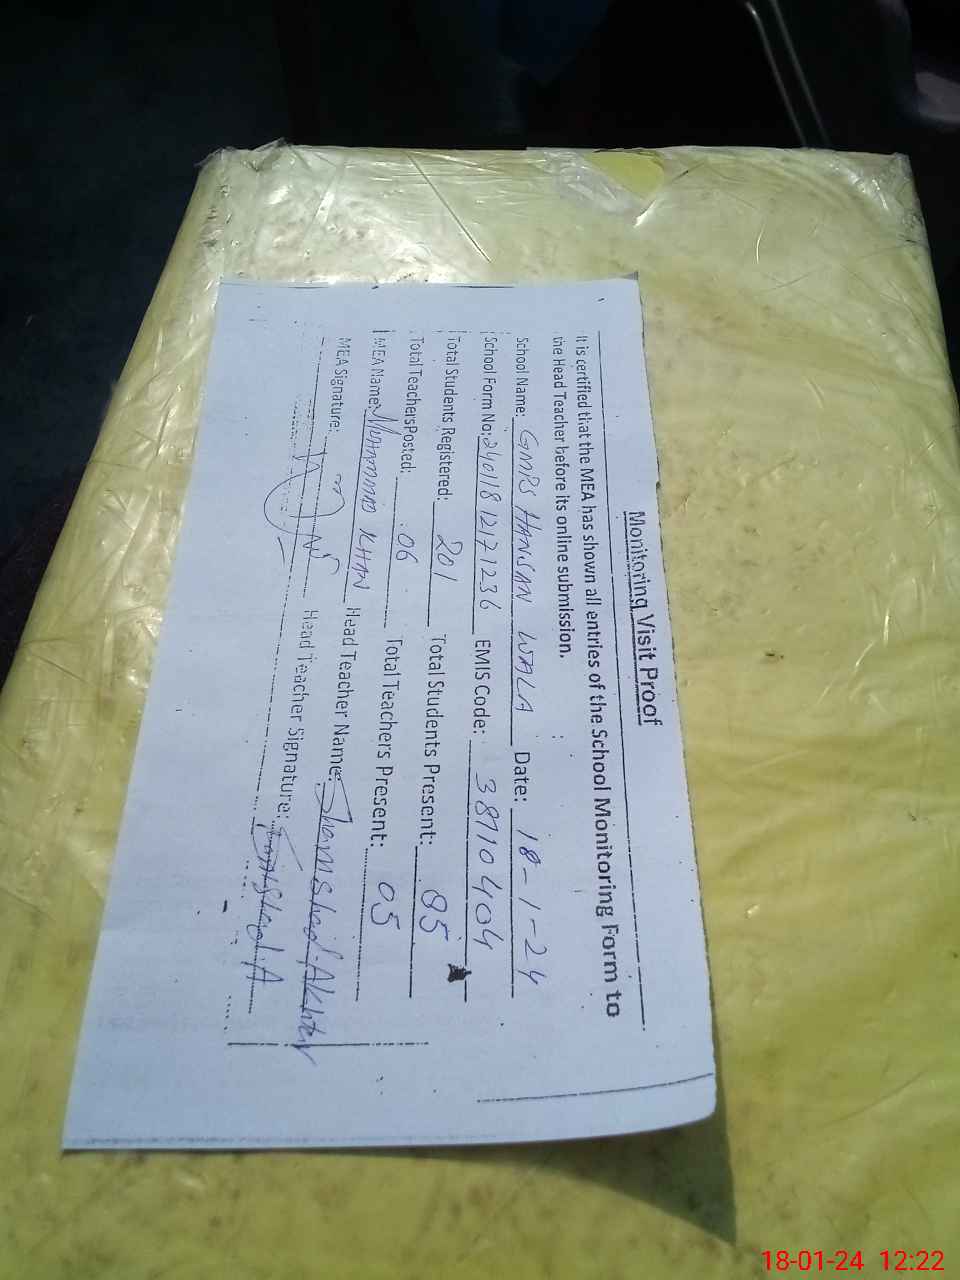 Monitoring Visit Proof
It is certified that the MEA has shown all entries of the School Monitoring Form to
the Head Teacher before its online submission.
School Name: GMPS HANSAN WALA Date: 18-1-24
School Form No: 24011812171236 EMIS Code: 38710404
Total Students Registered: 201 Total Students Present: 85
Total Teachers Posted: 06 Total Teachers Present: 05
MEA Name: MUHAMMAD KHAN Head Teacher Name: Shamshad Akhter
MEA Signature: Head Teacher Signature:
18-01-24 12:22